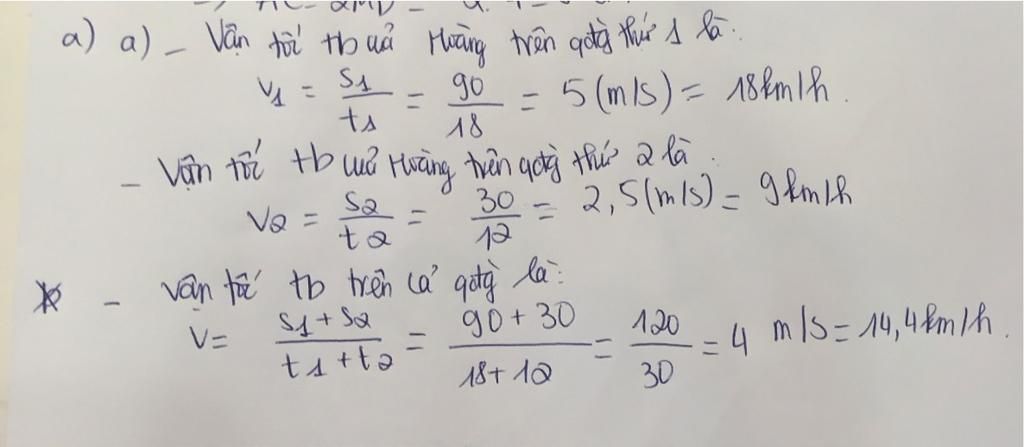 a) a) - Vận tốc tb uả Hoàng trên qđtg thứ 1 là:
V1 = S1/t1 = 90/18 = 5 (m/s) = 18km/h.
- Vận tốc tb uả Hoàng trên qđtg thứ 2 là:
V2 = S2/t2 = 30/12 = 2,5(m/s) = 9km/h
- Vận tốc tb trên cả qđtg là:
V = S1+S2/t1+t2 = 90+30/18+12 = 120/30 = 4 m/s = 14,4km/h.